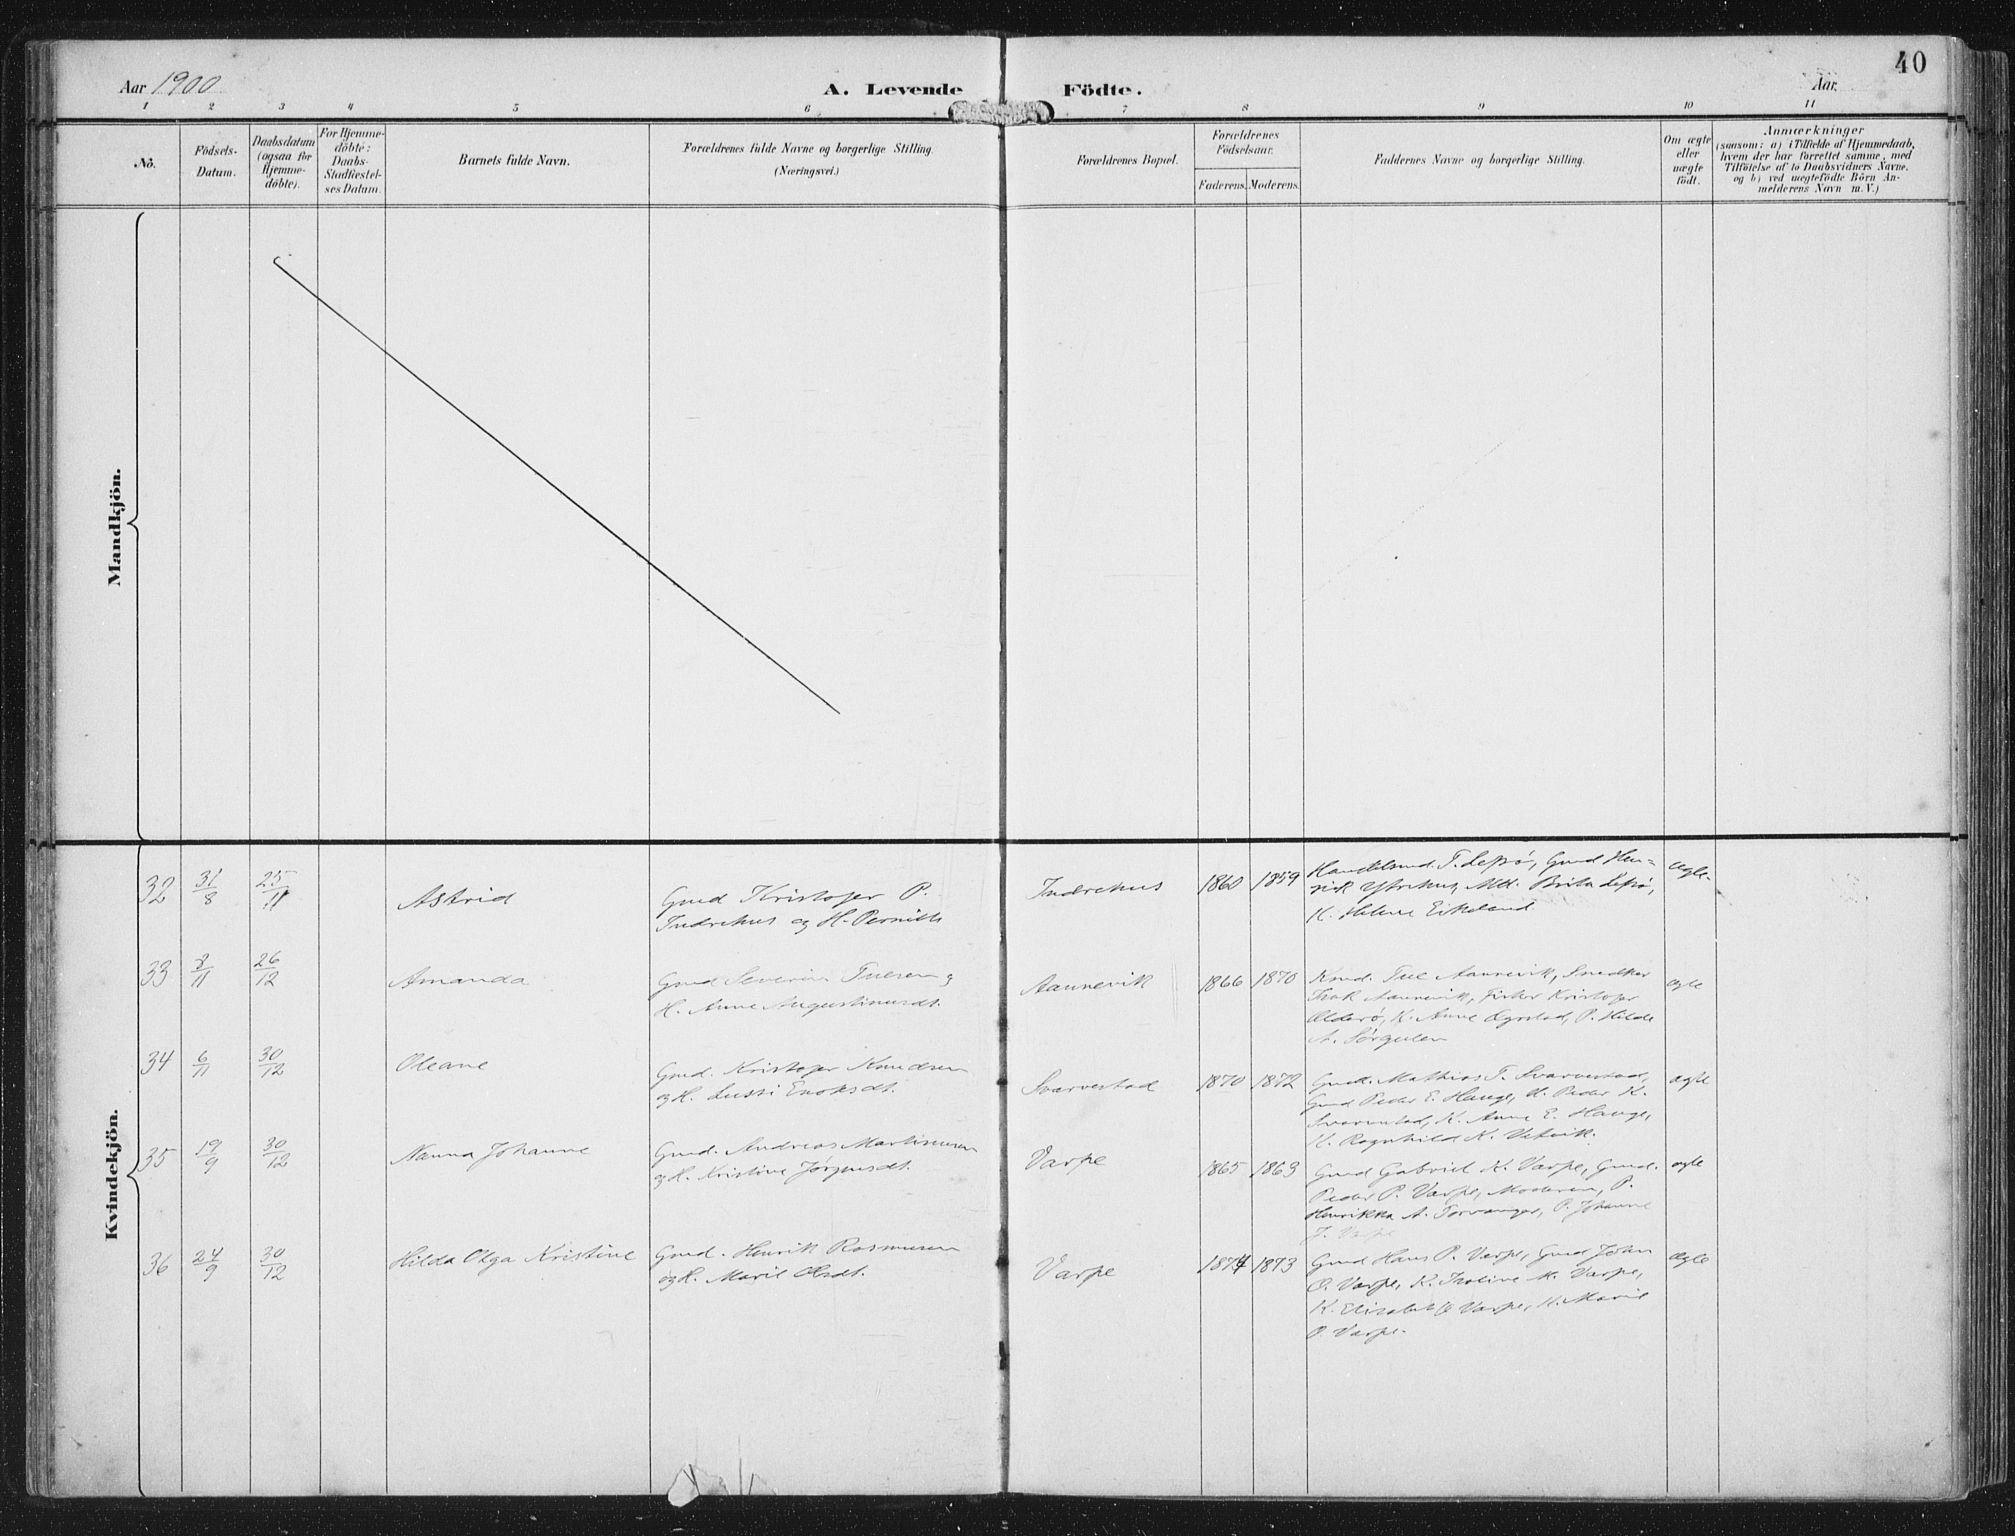 40
Aar 1900
A. Levende Födte.
Aar
1 2 3 4 5 6 7 8 9 10 11
No.
Födsels-
Datum.
Daabsdatum
(ogsaa for
Hjemme-
döbte).
For Hjemme-
döbte:
Daabs-
Stadfæstel-
ses Datum.
Barnets fulde Navn.
Forældrenes fulde Navne og borgerlige Stilling.
(Næringsvei.)
Forældrenes Bopæl.
Forældrenes
Födselsaar.
Faderens. Moderens.
Faddernes Navne og borgerlige Stilling.
Om ægte
eller
uægte
födt.
Anmærkninger
(saasom: a) i Tilfælde af Hjemmedaab,
hvem der har forrettet samme, med
Tilföielse af to Daabsvidners Navne,
og b) ved uægtefödte Börn An-
melderens Navn m. V.)
Mandkjön.
Kvindekjön.
32 31/8 25/11 Astrid
Gmd Kristofer P.
Indrehus og H. Pernille
Indrehus 1860 1859
Handelsmd. T. Lefsö, Gmd Hen-
rik Ytrehus, Md. Brita Lefsö,
K. Helene Eikeland
ægte
33 3/11 26/12 Amanda
Gmd Severin Tuesen og
H. Anne Augustinusdt.
Aannevik 1866 1870
Kmd. Tue Aannevik, Snedker
Isak Aannevik, Fisker Kristofer
Olderö, K. Anne
P. Hilde
A. Sörgulen
ægte
34 6/11 30/12 Oleane
Gmd. Kristofer Knudsen
og H. Lussi Enoksdt.
Svarvestad 1870 1872
Gmd. Mathias T. Svarvestad,
Gmd Peder E. Hauge, U. Peder K.
Svarvestad, K. Anne E. Hauge,
K. Ragnhild K. Vetvik.
ægte
35 19/9 30/12 Nanna Johanne
Gmd. Andreas Martinusen
og H. Kristine Jörgensdt.
Varpe 1865 1863
Gmd Gabriel K. Varpe, Gmd.
Peder P. Varpe, Moderen, P.
Henrikka A. Torvanger, P. Johanne
J. Varpe
ægte
36 24/9 30/12 Hilda Olga Kristine
Gmd. Henrik Rasmusen
og H. Marie Olsdt.
Varpe 1874 1873
Gmd Hans P. Varpe, Gmd John
O. Varpe, K. Tholine M. Varpe,
K. Elisabet J. Varpe, K. Marie
O. Varpe.
ægte